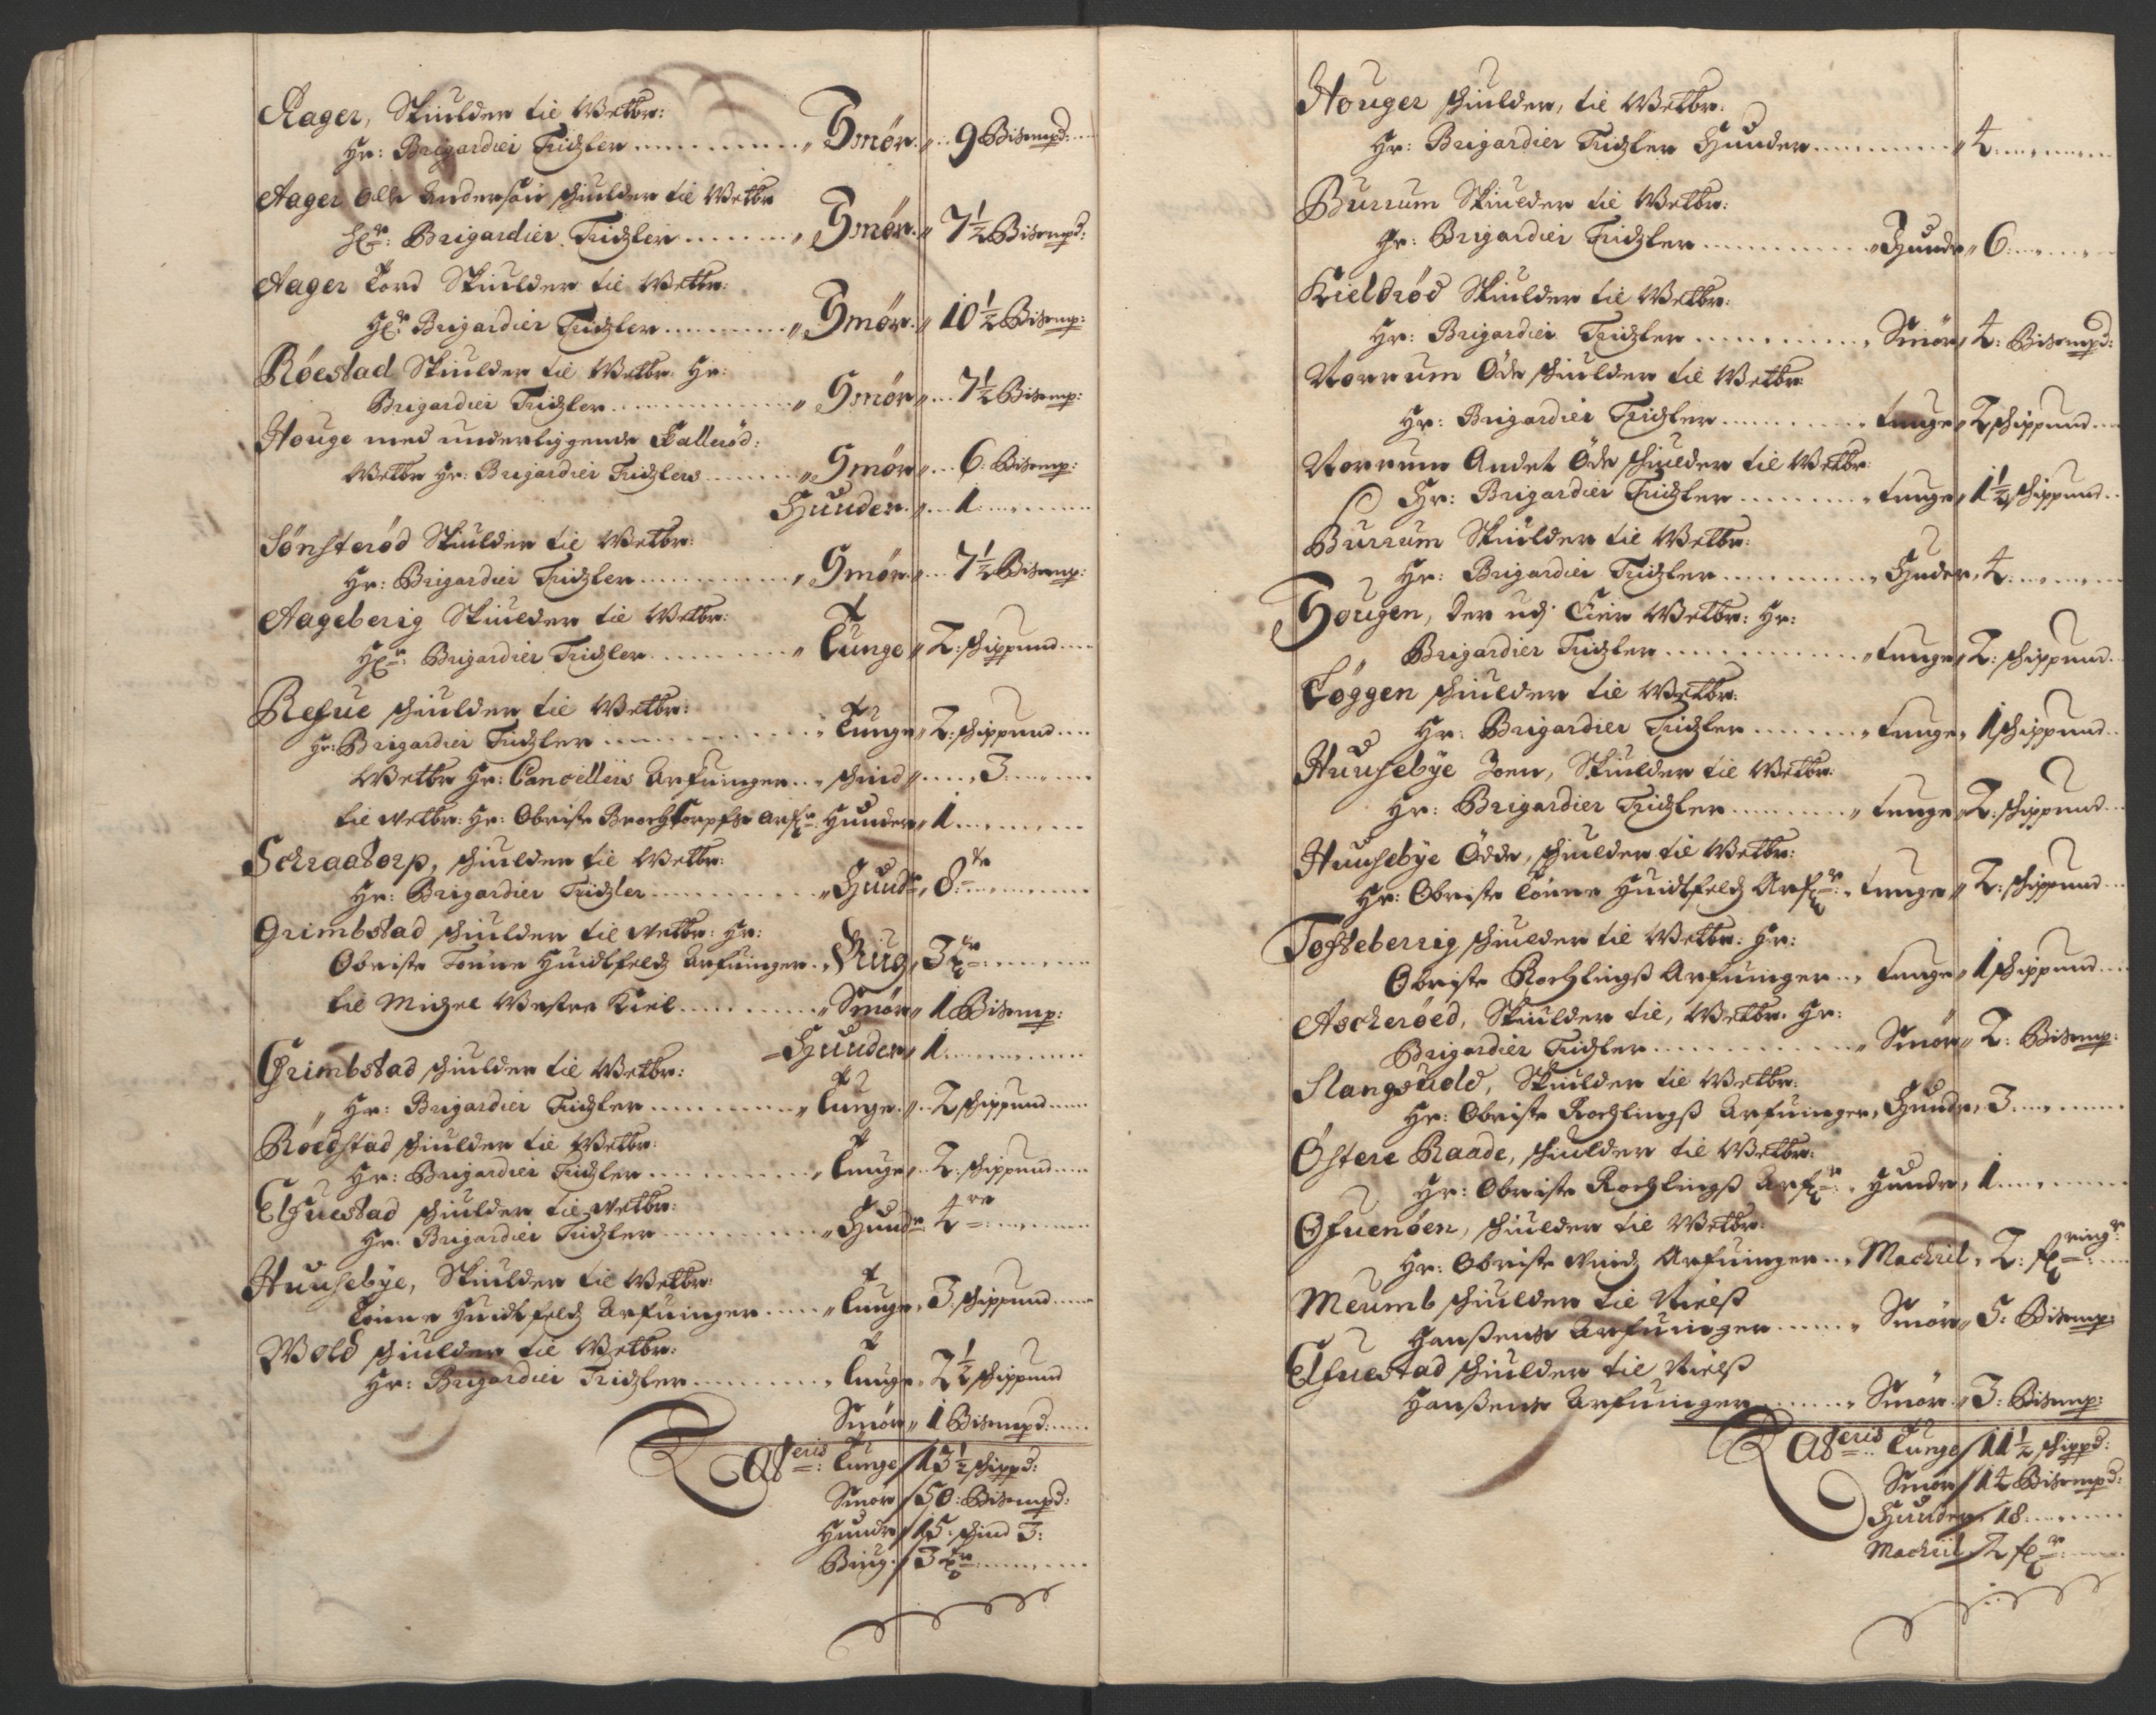 Aager, Skiulder til Welbr:
Hr: Brigardier Tridzler ......... „ Smør „ .. 9 Bisempd: ...
Aager Olle Anderssøn skiulder til Welbr
Hr: Brigardier Tridzler ....... „ Smør „ 7½ Bisempd:
Aager Tord Skiulder til Welbr:
Hr: Brigardier Tridzler ......... „ Smør „ 10½ Bisemp:
Røestad Skiulder til Welbr: Hr:
Brigardier Tridzler ............ „ Smør „ ... 7½ Bisemp:
Houge med underliggende Kallerød:
Welbr Hr: Brigardier Tridzlers ....... „ Smør „ ... 6: Bisemp:
Huuder „ ... 1 .........
Sønsterød Skiulder til Welbr:
Hr: Brigardier Tridzler ............ „ Smør „ ... 7½ Bisemp:
Aageberig Skiulder til Welbr:
Hr: Brigardier Tridzler ......... „ Tunge „ 2: skippund ....
Refue skiulder til Welbr:
Hr: Brigardier Tridzler ............ „ Tunge „ 2: skippund ....
Welbr Hr: Cancellers Arfuinger .. „ skind „ ..... 3 ......
til Welbr: Hr: Obriste Brochtorpffs arfr: Huuder „ 1 .......
Schraatorp, skiulder til Welbr:
Hr: Brigardier Tridzler ............ „ Huudr „ 8te .......
Grimbstad skiulder til Welbr: Hr:
Obriste Tønne Huidtfeldz Arfuinger .. „ Rug „ 3 tr .......
til Michel Westre Kiel .......... „ Smør „ 1 Bisemp:
Huuder „ 1 ..........
Grimbstad skiulder til Welbr:
„ Hr: Brigardier Tridzler ........... „ Tunge „ .. 2 skippund .....
Roedstad skiulder til Welbr:
Hr: Brigardier Tridzler ............ „ Tunge „ .. 2: skippund ....
Elfuestad skiulder til Welbr:
Hr: Brigardier Tridzler ............ „ Huudr 4re ........
Huusebye, Skiulder til Welbr:
Tønne Huidtfeldz Arfuinger ..... „ Tunge „ 3: skippund .....
Wold skiulder til Welbr:
Hr: Brigardier Tridzler ......... „ Tunge „ 2½ skippund
Smør „ 1 Bisempd: .....
Lateris Tunge / 13½ skippd:
Smør / 50: Bisempd:
Huudr / 15: skind 3:
Rug / 3 tr .........
Houger skiulder, til Welbr:
Hr: Brigardier Tridzler Huuder ........... „ 4 ........
Burrum Skiulder til Welbr:
Hr: Brigardier Tridzler ............ „ Huudr „ 6 .......
Kieldrød Skiulder til Welbr:
Hr: Brigardier Tridzler ............ „ Smør „ 4: Bisempd:
Norrum Øde skiulder til Welbr:
Hr: Brigardier Tridzler .......... „ Tunge „ 2 skippund ....
Norrum Andet Øde skiulder til Welbr:
Hr: Brigardier Tridzler ......... „ Tunge „ 1½ skippund ..
Burrum Skiulder til Welbr:
Hr: Brigardier Tridzler ............ „ Huder „ 4 ........
Hougen, der udj Eier Welbr: Hr:
Brigardier Tridzler ............. „ Tunge „ 2: skippund ..
Løggen skiulder til Welbr:
Hr: Brigardier Tridzler ........ „ Tunge „ 1 skippund ..
Huusebye Joen, Skiulder til Welbr:
Hr: Brigardier Tridzler ......... „ Tunge „ 2: skippund ...
Huusebye Ødde, skiulder til Welbr:
Hr: Obriste Tønne Huidtfeldz Arfr: „ Tunge „ 2: skippund ...
Tofteberrig skiulder til Welbr: Hr:
Obriste Rochlingss Arfuinger ... „ Tunge „ 1 skippund ....
Ascherøed, Skiulder til, Welbr: Hr:
Brigardier Tridzler ............. „ Smør „ 2: Bisemp:
Slangsuold, Skiulder til Welbr:
Hr: Obriste Rochlingss Arfuinger, Huudr „ 3 ........
Østere Raade, skiulder til Welbr:
Hr: Obriste Rochlingss Arfr: „ Huudr „ 1 ........
Ofuenøen, skiulder til Welbr:
Hr: Obriste Arfuinger .. „ Machril „ 2: fr
Meumb skiulder til Nielss
Hanssens Arfuinger ...... „ Smør „ 5: Bisemp:
Elfuestad skiulder til Nielss
Hanssens Arfuinger ....... „ Smør „ 3: Bisemp:
Lateris Tunge / 11½ skippd:
Smør / 14 Bisempd:
Huuder / 18 ........
Machril / 2 fr ......